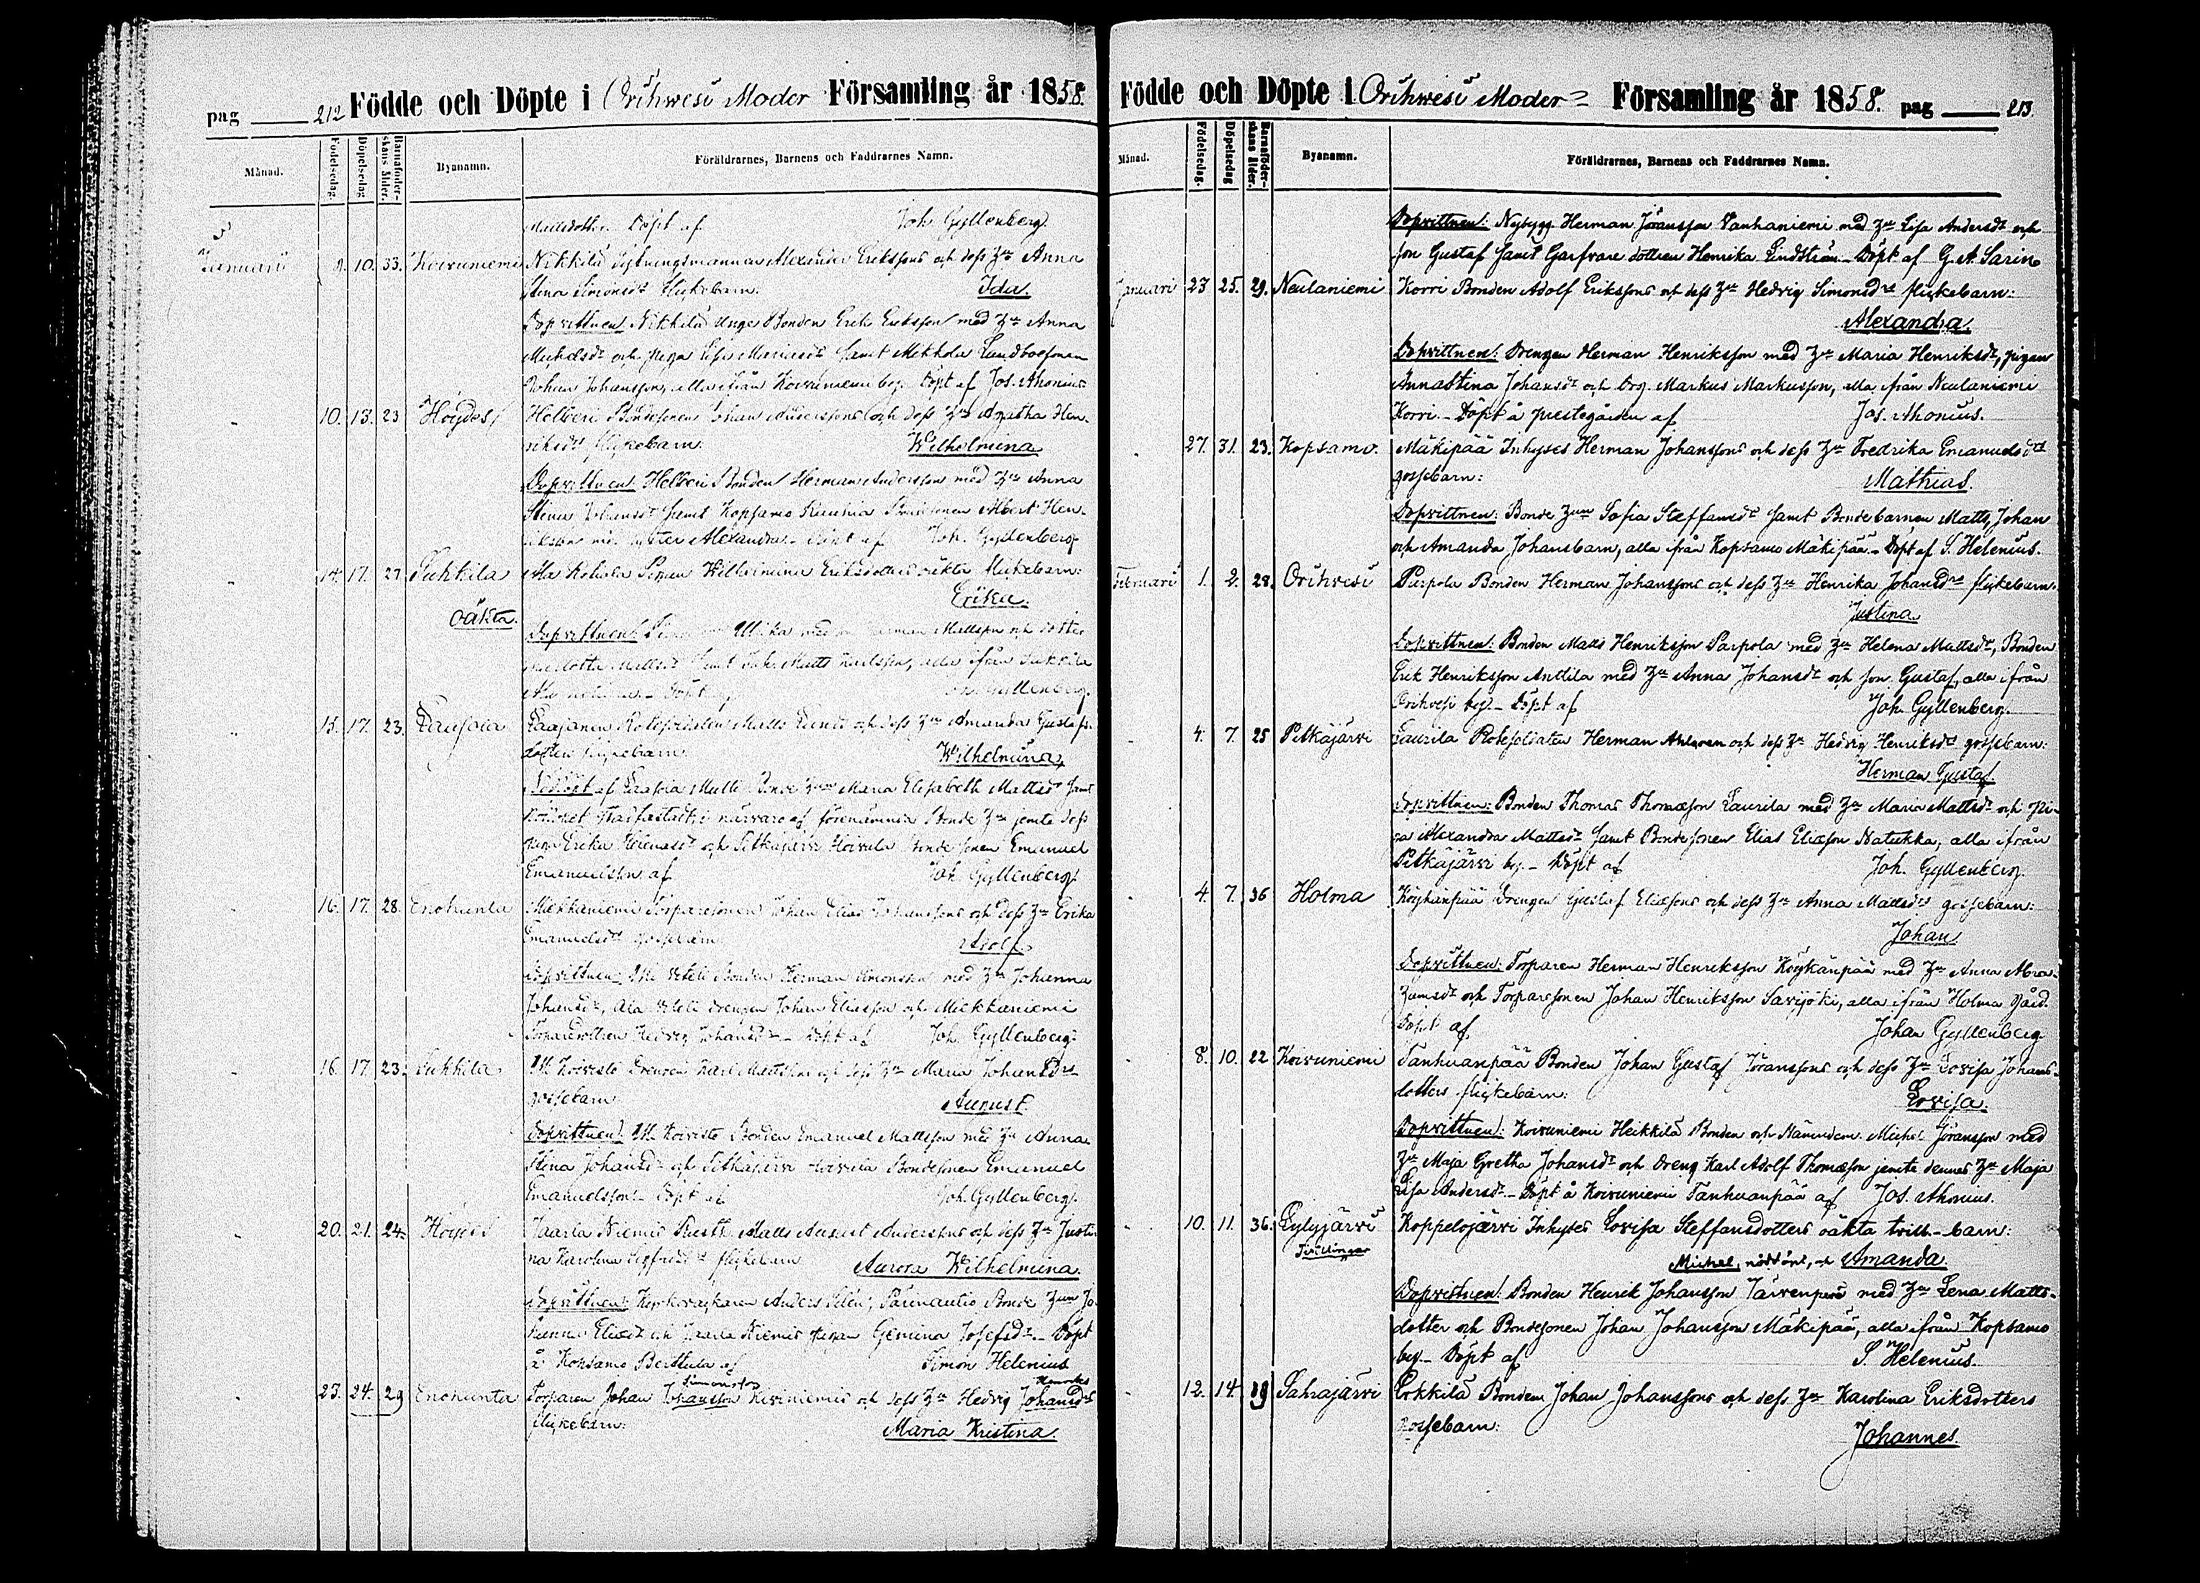 pag 212 Födde och Döpte i Orihwesi Moder Församling år 1858.
Månad. Födelsedag. Döpelsedag Barnaföderskans ålder. Byanamn. Föräldrarnes, Barnens och Faddrarnes Namn.
Döpt af Joh. Gyllenberg.
Januari 8. 10. 33. Koivuniemi Nikkilä Alexander Erikssons och dess hu Anna
Stina Simonsdr flickebarn: Ida.
Dopvittnen: Nikkilä unge Bonden Erik Eriksson med hu Anna
Michelsdr och piga Lisa samt Mikkola Landbosonen
Johan Johansson, alla ifrån Koivuniemi by. Döpt af Jos. Ahonius.
10. 13. 23 Höydes Helberi Bondesonen Johan Anderssons och dess hu Agatha Hen-
riksdrs flickebarn: Wilhelmina
Dopvittnen: Helberi Bonden Herman Andersson med hu Anna
Stina Johansdr samt Kopsamo Bondesonen Albert Hen-
riksson med syster Alexandra. Döpt af Joh. Gyllenberg
14. 17. 27. Sukkila Ala Kohula Pigan Wilhelmina Eriksdotters oäkta flickebarn:
oäkta. Erika.
Dopvittnen: Ulrika med son Herman Mattsson och dotter
samt Matts Karlsson, alla ifrån Sukkila
Döpt af Joh. Gyllenberg.
15. 17. 23. Paasoia Paasonen Rotesoldaten Matts och dess hu Amanda Gustafs-
dotters flickebarn: Wilhelmina,
Nöddöpt af Paasoia Bonde hun Maria Elisabeth Mattsdr samt
stadfästadt i närvaro af förenämnda Bonde hu jemte dess
piga Erika och Pitkäjärvi Hoivala Bondesonen Emanuel
Emanuelsson af Joh. Gyllenberg.
16. 17. 28. Enokunta Mickkaniemi Torparesonen Johan Elias Johanssons och dess hu Erika
Emanuelsdrs gossebarn: Adolf.
Dopvittnen: Yli Veteli Bonden Herman Simonsson med hu Johanna
Johansdr, Ala Veteli drengen Johan Eliasson och Mickkaniemi
Torparedottren Hedvig Johansdr. Döpt af Joh. Gyllenberg.
16. 17. 23. Sukkila Yli Koivisto Drengen Karl Mattssons och dess hu Maria Johansdrs
gossebarn: August.
Dopvittnen: Yli Koivisto Bonden Emanuel Mattsson med hu Anna
Stina Johansdr och Pitkäjärvi Hoivala Bondesonen Emanuel
Emanuelsson. Döpt af Joh. Gyllenberg.
20. 21. 24. Höydes Kaarla Niemis Matts August Anderssons och dess hu Justi-
na Karolina Sigfridsdrs flickebarn: Aurora Wilhelmina.
Dopvittnen: Kyrkoväktaren Anders Selén, Pärenautio Bonde hun Jo-
hanna Eliædr och Kaarla Niemis pigan Gemina Josefsdr. Döpt
å Kopsamo Berttula af Simon Helenius
Simonsson Henriks
23. 24. 29 Enokunta Torparen Johan Johansson Kiviniemis och dess hu Hedvig Johansdrs
flickebarn: Maria Kristina.
Födde och Döpte i Orihwesi Moder- Församling år 1858. pag 213.
Månad. Födelsedag. Döpelsedag Barnaföderskans ålder. Byanamn. Föräldrarnes, Barnens och Faddrarnes Namn.
Dopvittnen: Nybygg. Herman Jöransson Vanhaniemi med hu Lisa Andersdr och
son Gustaf samt Garfvare dottren Henrika Lindström. Döpt af G. A. Sarin
Januari 23 25. 29. Neulaniemi Korri Bonden Adolf Erikssons och dess hu Hedvig Simonsdrs flickebarn:
Alexandra.
Dopvittnen: Drengen Herman Henriksson med hu Maria Henriksdr, pigan
Anna Stina Johansdr och drg. Markus Markusson, alla ifrån Neulaniemi
Korri. Döpt å prestegården af Jos. Ahonius.
27. 31. 23. Kopsamo. Mäkipää Inhyses Herman Johanssons och dess hu Fredrika Emanuelsdrs
gossebarn: Mathias.
Dopvittnen: Bonde hun Sofia Steffansdr samt Bondebarnen Matts, Johan
och Amanda Johansbarn, alla ifrån Kopsamo Mäkipää. Döpt af S. Helenius.
Februari 1. 2. 28. Orihvesi Parpola Bonden Herman Johanssons och dess hu Henrika Johansdrs flickebarn:
Justina.
Dopvittnen: Bonden Matts Henriksson Parpola med hu Helena Mattsdr, Bonden
Erik Henriksson Anttila med hu Anna Johansdr och son Gustaf, alla ifrån
Orihvesi by. Döpt af Joh. Gyllenberg.
4. 7. 25 Pitkäjärvi Laurila Rotesoldaten Herman Ahlgren och dess hu Hedvig Henriksdrs gossebarn:
Herman Gustaf.
Dopvittnen: Bonden Thomas Thomæson Laurila med hu Maria Mattsdr och pi-
ga Alexandra Mattsdr samt Bondesonen Elias Eliæson Natukka, alla ifrån
Pitkäjärvi by. Döpt af Joh. Gyllenberg.
4. 7. 36 Holma Köykänpää Drengen Gustaf Eliæsons och dess hu Anna Mattsdrs gossebarn:
Johan.
Dopvittnen: Torparen Herman Henriksson Köykänpää med hu Anna Abra-
hamsdr och Torparesonen Johan Henriksson Savijoki, alla ifrån Holma gård.
Döpt af Johan Gyllenberg.
8. 10. 22 Koivuniemi Tanhuanpää Bonden Johan Gustaf Jöranssons och dess hu Lovisa Johans-
dotters flickebarn: Lovisa.
Dopvittnen: Koivuniemi Heikkilä Bonden och Nämndem. Michel Jöransson med
hu Maja Gretha Johansdr och dreng Karl Adolf Thomæson jemte dennes hu Maja
Lisa Andersdr. Döpt å Koivuniemi Tanhuanpää af Jos. Ahonius.
10. 11. 36. Gylyjärvi Koppelojärvi Inhyses Lovisa Steffansdotters oäkta tvill-barn:
Tvillingar Michel, nöddöpt, och Amanda.
Dopvittnen: Bonden Henrik Johansson Järvenpää med hu Lena Matts-
dotter och Bondesonen Johan Johansson Mäkipää, alla ifrån Kopsamo
by. Döpt af S. Helenius.
12. 14. 39 Sahrajärvi Erkkilä Bonden Johan Johanssons och dess hu Karolina Eriksdotters
gossebarn: Johannes.